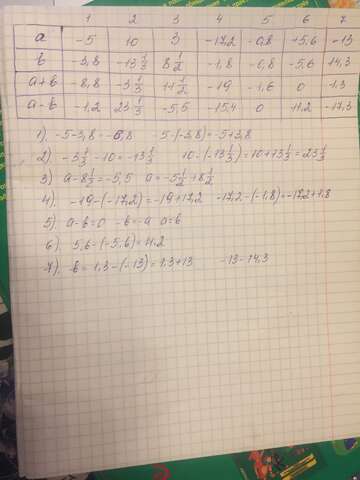 1 2 3 4 5 6 7
a -5 10 3 -17,2 -0,8 5,6 -13
b -3,8 -13 1/3 8 1/2 -1,8 -0,8 -5,6 14,3
a+b -8,8 -3 1/3 11 1/2 -19 -1,6 0 1,3
a-b -1,2 23 1/3 -5,5 -15,4 0 11,2 -17,3
1) -5-3,8=-8,8 5-(-3,8)=-5+3,8
2) -3 1/3 -10=-13 1/3 10-(-13 1/3)=10+13 1/3=23 1/3
3) a-8 1/2=-5,5 a=-5 1/2+8 1/2
4). -19-(-17,2)=-19+17,2 -17,2-(-1,8)=-17,2+1,8
5) a-b=0 -b=-a a=b
6) 5,6-(-5,6)=11,2
7). b=1,3-(-13)=1,3+13 -13-14,3